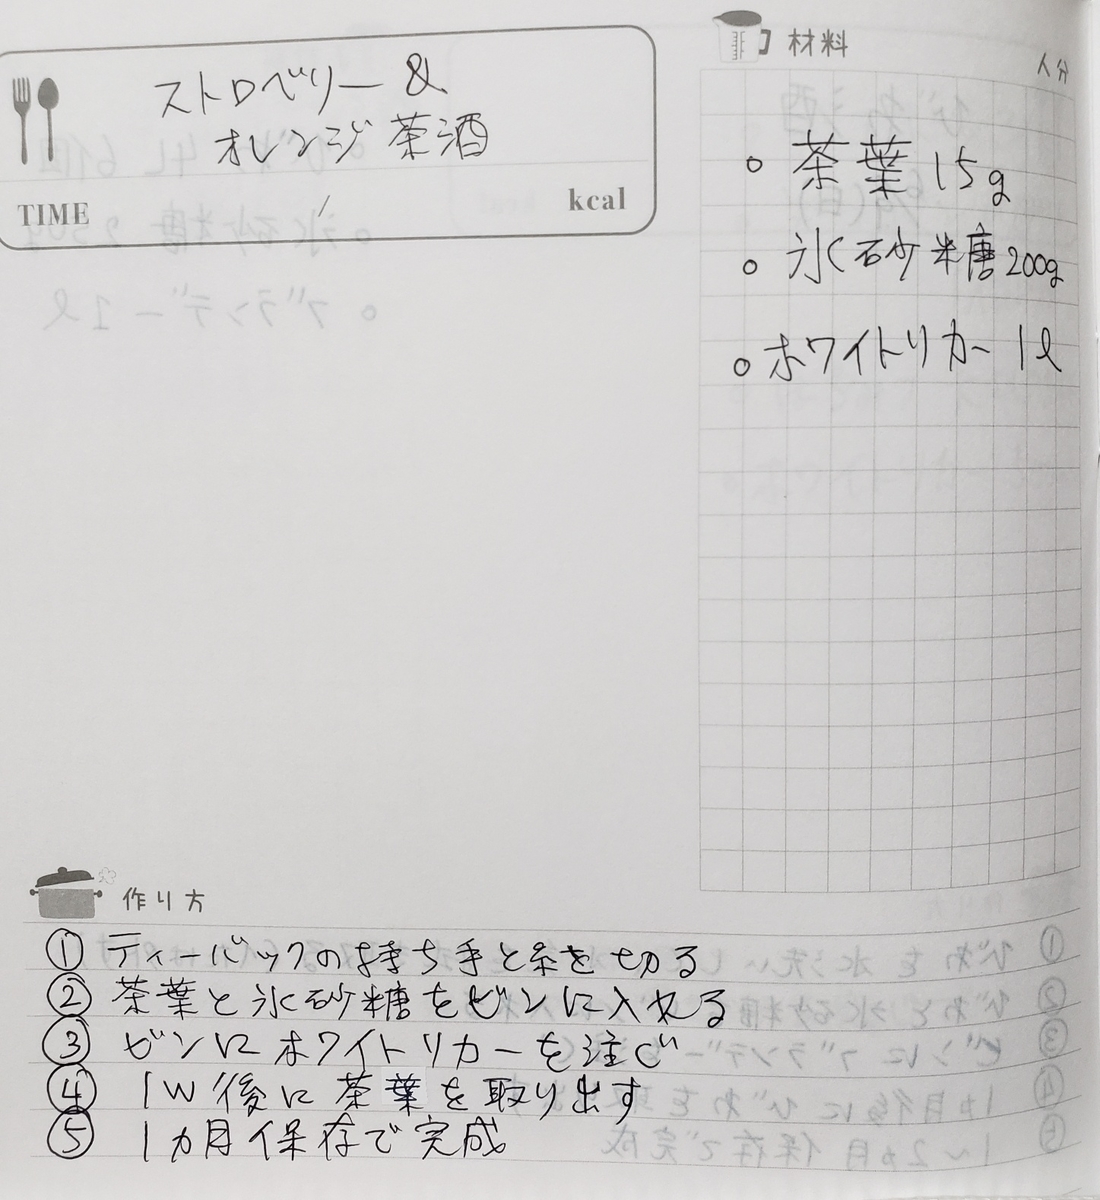 ストロベリー &
オレンジ茶酒
TIME / kcal
材料
人分
○ 茶葉 15g
○ 氷砂糖 200g
○ ホワイトリカー 1ℓ
作り方
① ティーバックの持ち手と糸を切る
② 茶葉と氷砂糖をビンに入れる
③ ビンにホワイトリカーを注ぐ
④ 1W後に茶葉を取り出す
⑤ 1ヵ月保存で完成